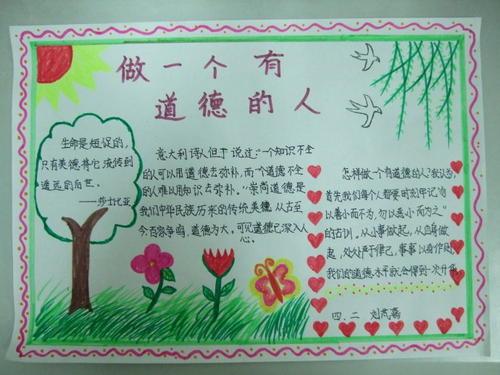 做一个有
道德的人
生命是短促的,
只有美德将它流传到
遥远的后世。
——莎士比亚
意大利诗人但丁说过:“一个知识不全
的人可以用道德去弥补,而一个道德不全
的人难以用知识去弥补。”崇尚道德是
我们中华民族历来的传统美德,从古至
今百家争鸣,道德为大,可见道德已深入人
心。
怎样做一个有道德的人?我认为,
首先我们每个人都要时刻牢记“勿
以善小而不为,勿以恶小而为之”
的古训。从小事做起,从自身做
起,处处严于律己,事事以身作则,
我们的道德水平就会得到一次升华
四.二 刘